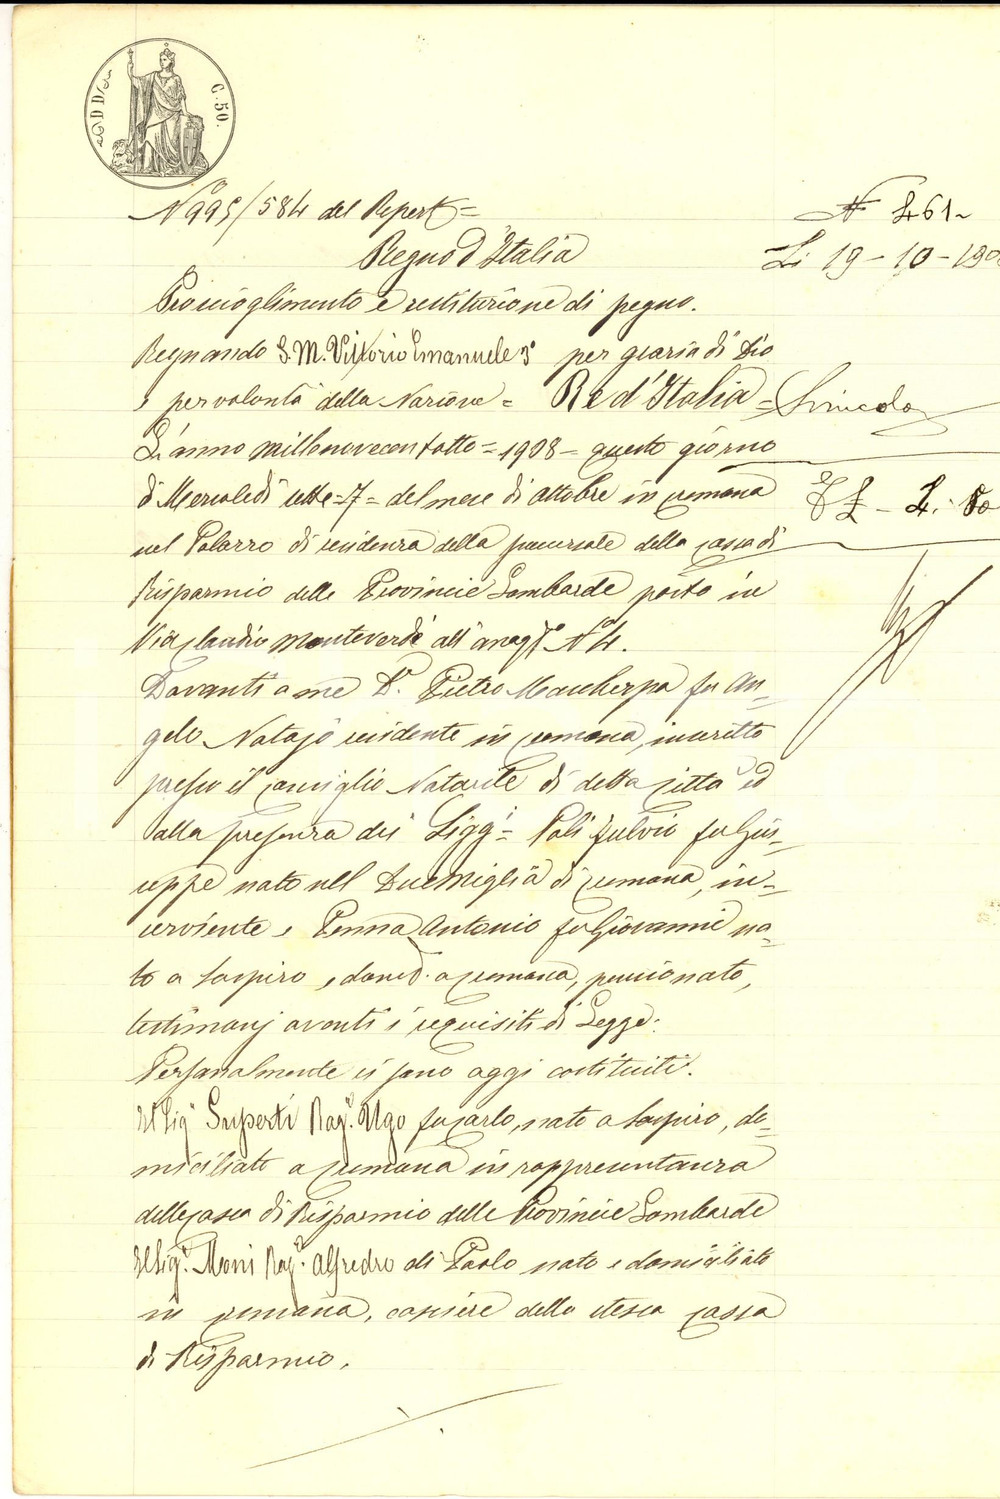 DD C. 50.
N° 995/584 del Repert=
N° 461
Li 19-10-190
Regno d'Italia
Proscioglimento e restituzione di pegno.
Regnando S. M. Vittorio Emanuele 3° per grazia di Dio
e per volontà della Nazione = Re d'Italia =
L'anno millenovecentotto = 1908 = questo giorno
di Mercoledì sette = 7 = del mese di Ottobre in Cremona
nel Palazzo di residenza della succursale della Cassa di
Risparmio delle Provincie Lombarde posto in
Via Claudio Monteverdi all'anagr° N° 4.
Davanti a me Dr. Pietro Mascherpa fu An-
gelo Notajo residente in Cremona, inscritto
presso il Consiglio Notarile di detta città ed
alla presenza dei Sigg.i Poli Fulvio fu Giu-
seppe nato nel Duemiglia di Cremona, in-
serviente e Penna Antonio fu Giovanni na-
to a Sospiro, e domic. a Cremona, pensionato,
testimonj aventi i requisiti di Legge:
Personalmente si sono oggi costituiti.
Il Sigr. Superti Ragr. Ugo fu Carlo, nato a Sospiro, do-
miciliato a Cremona in rappresentanza
della Cassa di Risparmio delle Provincie Lombarde
Il Sigr. Moni Ragr. Alfredo di Paolo nato e domiciliato
in Cremona, cassiere della stessa Cassa
di Risparmio.